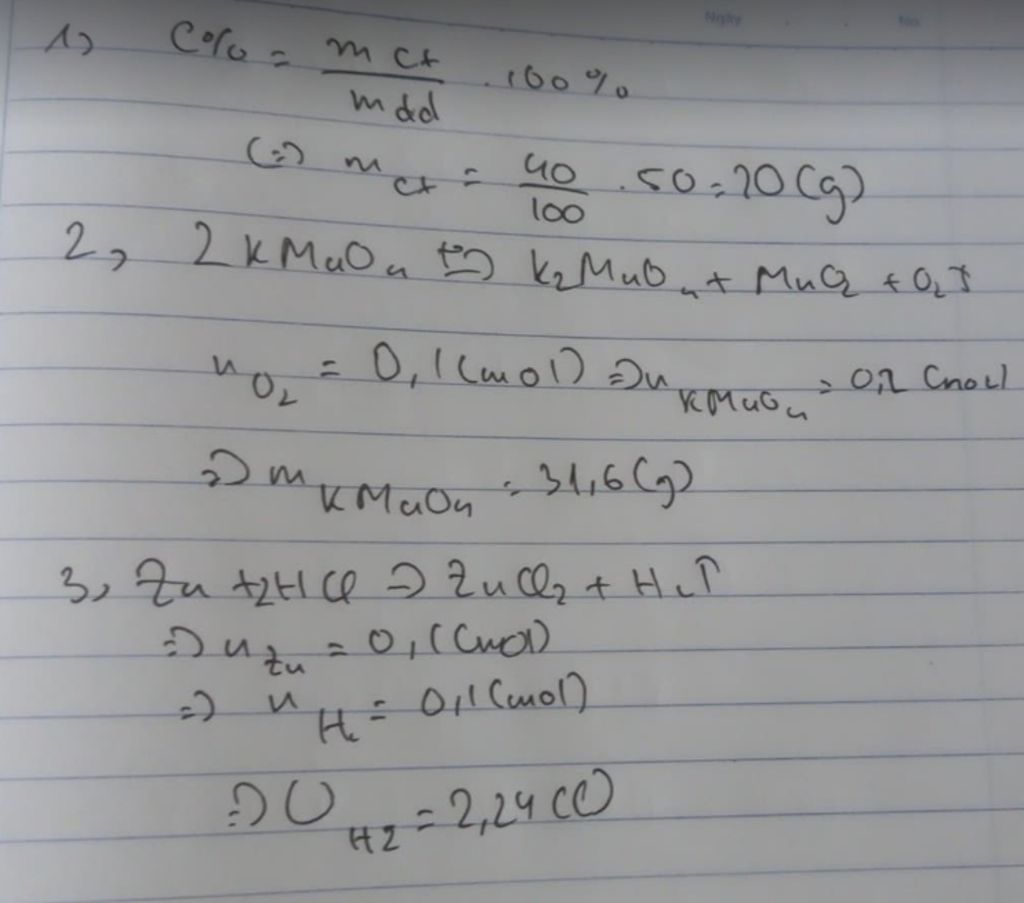 Ngày . . No.
1, C% = m ct / m dd . 100%
(=) m ct = 40/100 . 50 = 20 (g)
2, 2KMnO4 t°=> K2MnO4 + MnO2 + O2↑
n O2 = 0,1 (mol) => n KMnO4 = 0,2 (mol)
=> m KMnO4 = 31,6 (g)
3, Zn + 2HCl => ZnCl2 + H2↑
=> n Zn = 0,1 (mol)
=> n H2 = 0,1 (mol)
=> V H2 = 2,24 (l)